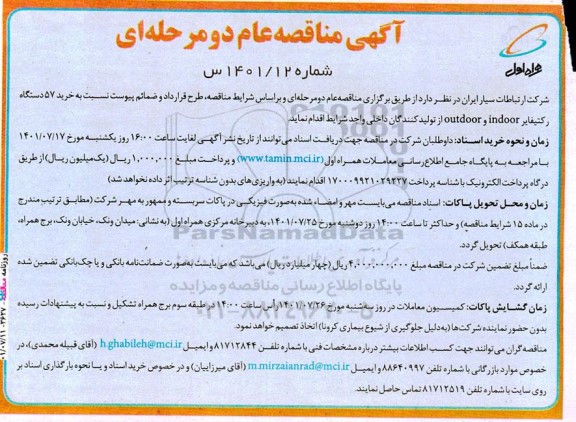 آگهی مناقصه عام دو مرحله‌ای
همراه اول
شماره ۱۴۰۱/۱۲ س
شرکت ارتباطات سیار ایران در نظر دارد از طریق برگزاری مناقصه عام دومرحله‌ای و براساس شرایط مناقصه، طرح قرارداد و ضمائم پیوست نسبت به خرید ۵۷ دستگاه
رکتیفایر indoor و outdoor از تولیدکنندگان داخلی واجد شرایط اقدام نماید.
زمان و نحوه خرید اسناد: داوطلبان شرکت در مناقصه جهت دریافت اسناد می‌توانند از تاریخ نشر آگهی لغایت ساعت ۱۶:۰۰ روز یکشنبه مورخ ۱۴۰۱/۰۷/۱۷
با مراجعه به پایگاه جامع اطلاع‌رسانی معاملات همراه اول (www.tamin.mci.ir) و پرداخت مبلغ ۱,۰۰۰,۰۰۰ ریال (یک‌میلیون ریال) از طریق
درگاه پرداخت الکترونیک با شناسه پرداخت ۱۷۰۰۰۹۹۲۱۰۲۹۲۳۷ اقدام نمایند (به واریزی‌های بدون شناسه ترتیب اثر داده نخواهد شد)
زمان و محل تحویل پاکات: اسناد مناقصه می‌بایست مهر و امضاء شده به‌صورت فیزیکی در پاکات سربسته و ممهور به مهر شرکت (مطابق ترتیب مندرج
در ماده ۱۵ شرایط مناقصه) و حداکثر تا ساعت ۱۴:۰۰ روز دوشنبه مورخ ۱۴۰۱/۰۷/۲۵، به دبیرخانه مرکزی همراه اول (به نشانی: میدان ونک، خیابان ونک، برج همراه،
طبقه همکف) تحویل گردد.
ضمناً مبلغ تضمین شرکت در مناقصه مبلغ ۴,۰۰۰,۰۰۰,۰۰۰ ریال (چهار میلیارد ریال) می‌باشد که می‌بایست به‌صورت ضمانت‌نامه بانکی و یا چک‌بانکی تضمین شده
ارائه گردد.
زمان گشایش پاکات: کمیسیون معاملات در روز سه‌شنبه مورخ ۱۴۰۱/۰۷/۲۶ رأس ساعت ۱۴:۰۰ در طبقه سوم برج همراه تشکیل و نسبت به پیشنهادات رسیده
بدون حضور نماینده شرکت‌ها (به‌دلیل جلوگیری از شیوع بیماری کرونا) اتخاذ تصمیم خواهد نمود.
مناقصه‌گران می‌توانند جهت کسب اطلاعات بیشتر درباره مشخصات فنی با شماره تلفن ۸۱۷۱۲۸۴۴ و ایمیل h.ghabileh@mci.ir (آقای قبیله محمدی)، در
خصوص موارد بازرگانی با شماره تلفن ۸۸۶۴۰۹۹۷ و ایمیل m.mirzaianrad@mci.ir (آقای میرزاییان) و در خصوص خرید اسناد و یا نحوه بارگذاری اسناد بر
روی سایت با شماره تلفن ۸۱۷۱۲۵۱۹ تماس حاصل نمایند.
ParsNamadData
پایگاه اطلاع رسانی مناقصه و مزایده
۰۲۱-۸۸۳۴۹۶۷۰-۵